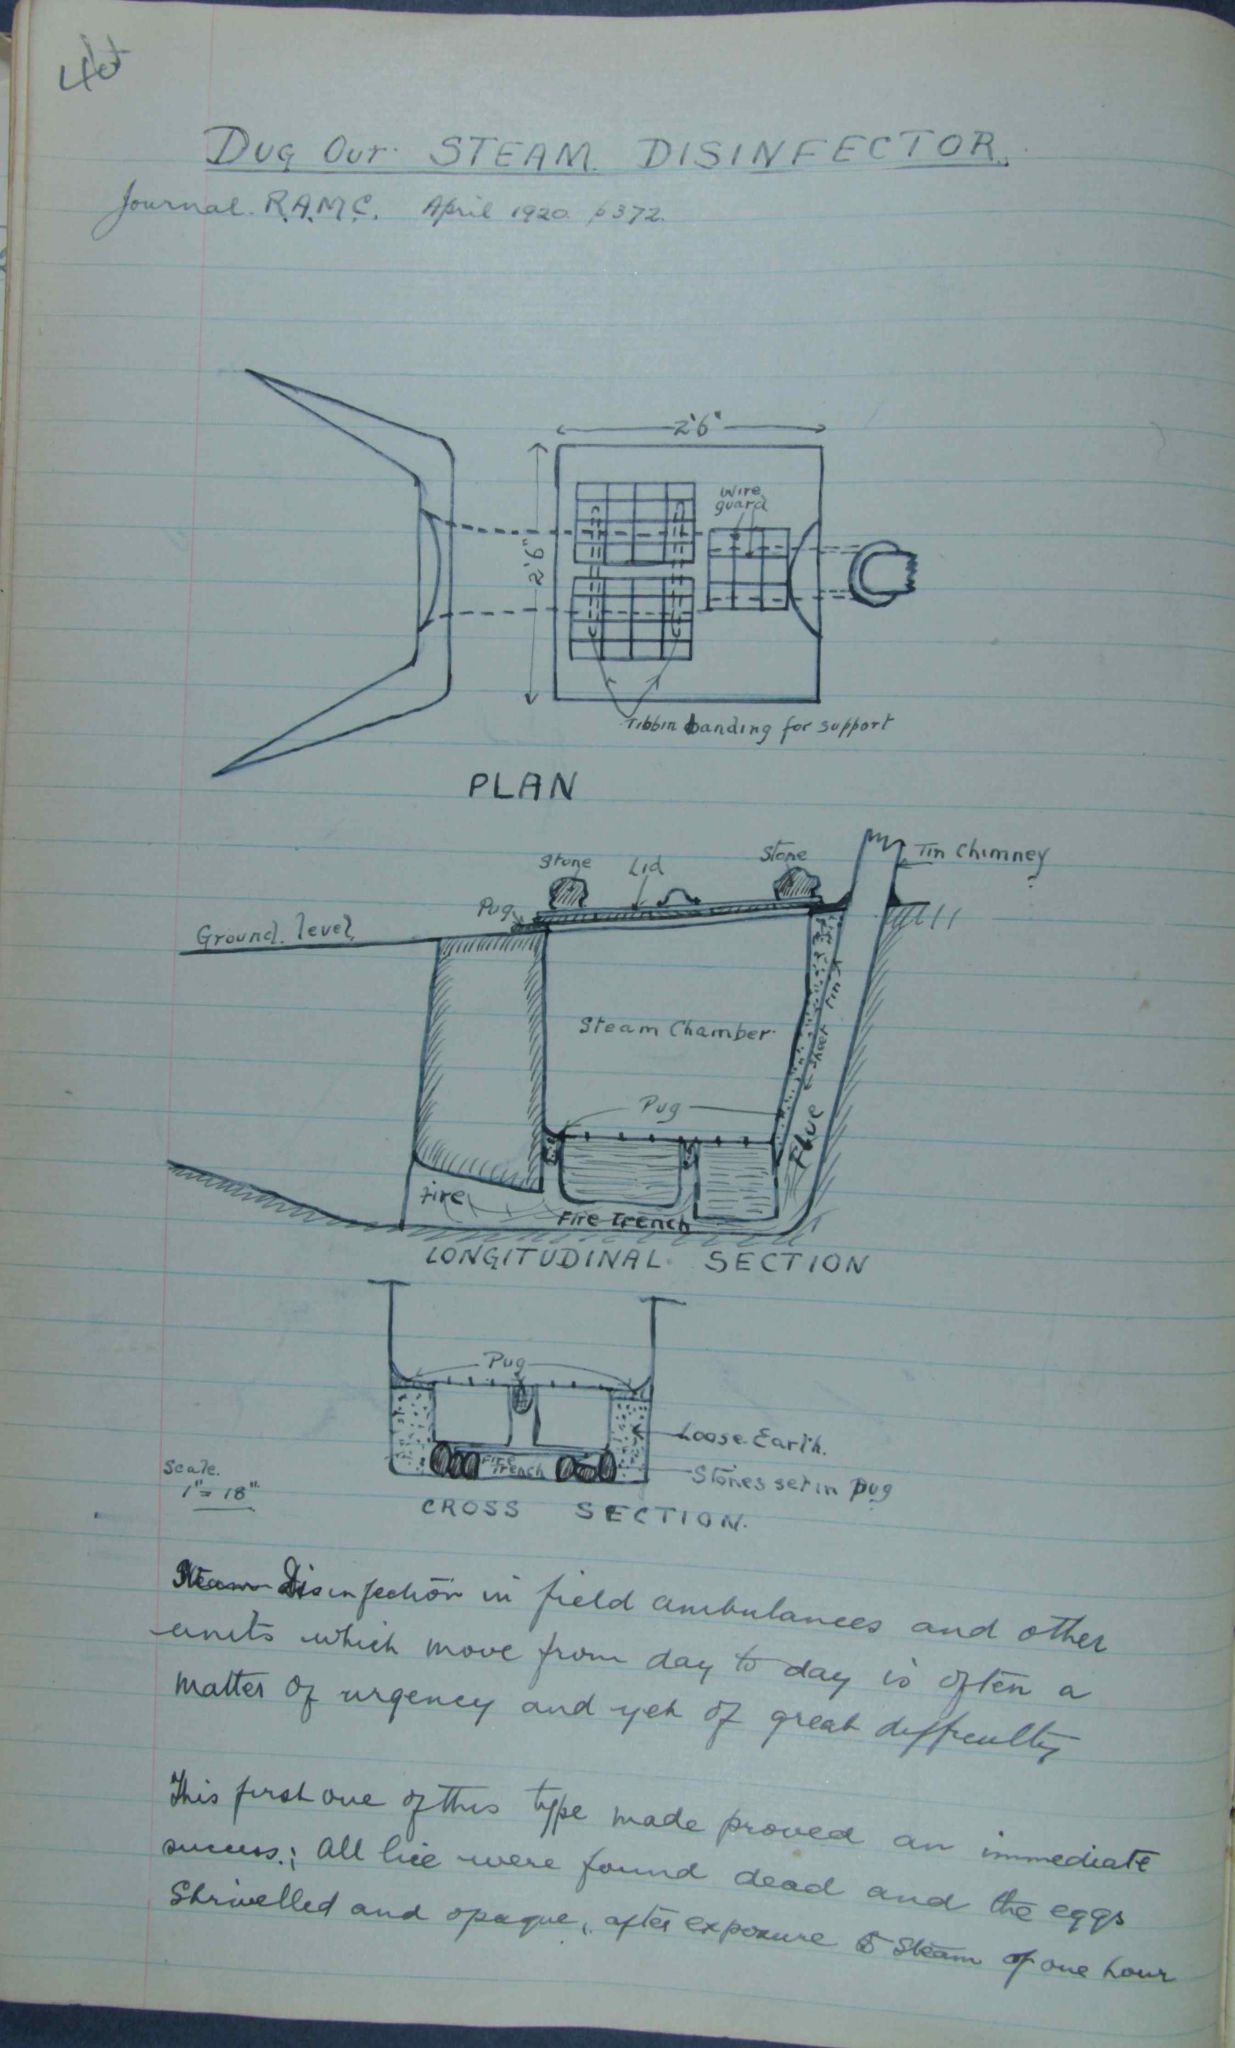 DUG OUT STEAM DISINFECTOR.
Journal. R.A.M.C. April 1920. p372.
2'6"
2'6"
Wire
guard
Tibbin banding for support
PLAN
Stone
Lid
Stone
Tin Chimney
Pug
Ground level
Steam Chamber
Sheet Tin
Pug
Flue
Fire
Fire Trench
LONGITUDINAL SECTION
Pug
Loose Earth.
Fire
Trench
Stones set in pug
Scale.
1" = 18"
CROSS SECTION.
Steam Disinfection in field ambulances and other
units which move from day to day is often a
matter of urgency and yet of great difficulty
This first one of this type made proved an immediate
success.; All lice were found dead and the eggs
Shrivelled and opaque, after exposure to Steam of one hour